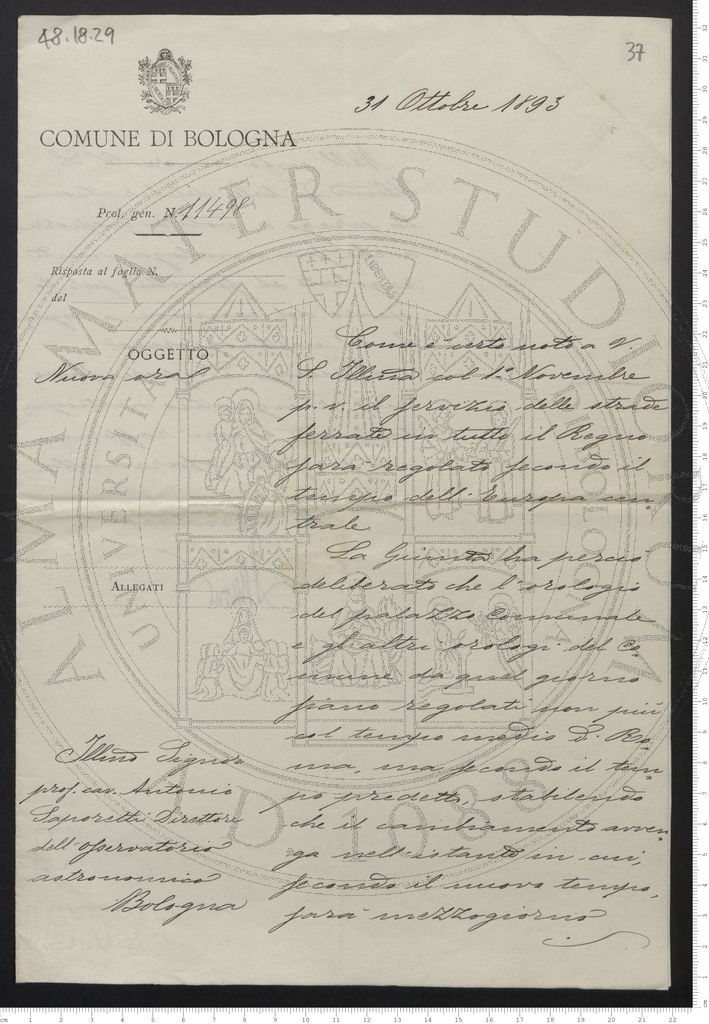 48.18.29
37
31 Ottobre 1893
COMUNE DI BOLOGNA
Prot. gen. N. 11498
Risposta al foglio N.
del
OGGETTO
Nuova ora
Come è certo noto a V.
S. Illma col 1º Novembre
p. v. il servizio delle strade
ferrate in tutto il Regno
sarà regolato secondo il
tempo dell'Europa cen-
trale.
La Giunta ha perciò
deliberato che l'orologio
del palazzo Comunale
e gli altri orologi del Co-
mune da quel giorno
siano regolati non più
col tempo medio di Ro-
ma, ma secondo il tem-
po predetto, stabilendo
che il cambiamento avven-
ga nell'istante in cui,
secondo il nuovo tempo,
sarà mezzogiorno
ALLEGATI
Illmo Signor
prof. cav. Antonio
Saporetti Direttore
dell'osservatorio
astronomico
Bologna
ALMA MATER STUDIORUM
A.D. 1088
LIBERTAS